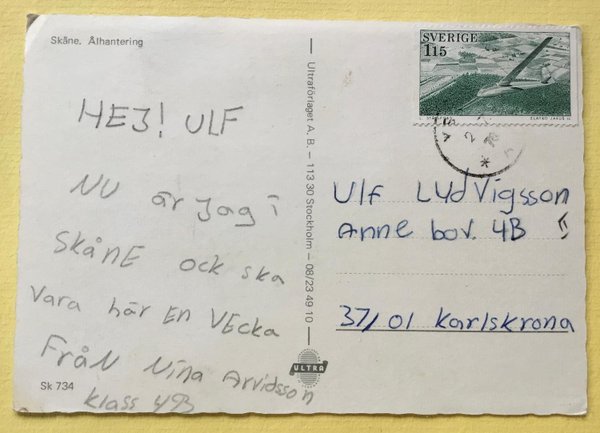 Skåne. Ålhantering
HEJ! ULF
NU är Jag i
SKÅNE ock ska
Vara här EN VECKA
FRÅN Nina Arvidsson
klass 4B
Sk 734
Ultraförlaget A. B. – 113 30 Stockholm – 08/23 49 10
ULTRA
SVERIGE
115
Ulf Ludvigsson
Anne bov. 4B
37101 Karlskrona